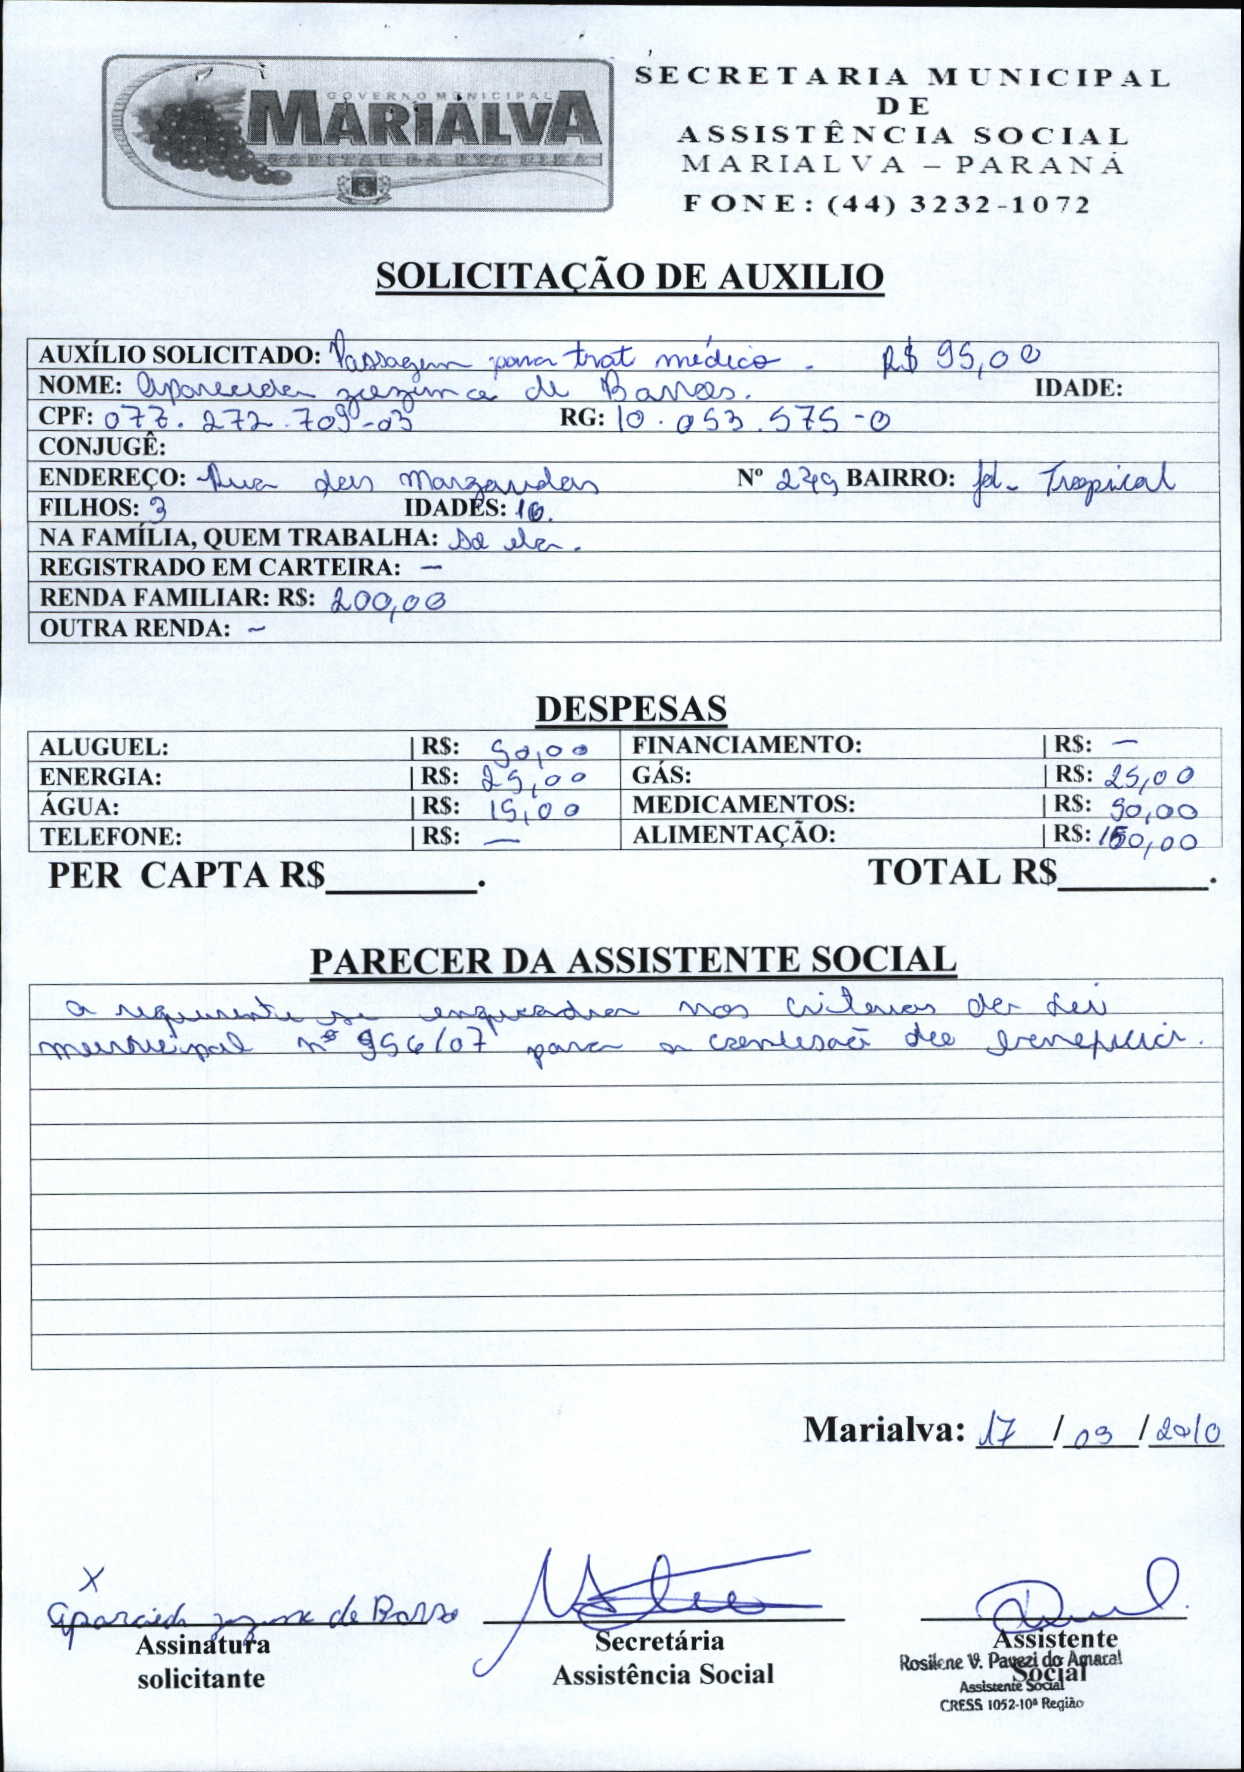 GOVERNO MUNICIPAL
MARIALVA
CAPITAL DA UVA FINA
SECRETARIA MUNICIPAL
DE
ASSISTÊNCIA SOCIAL
MARIALVA – PARANÁ
FONE: (44) 3232-1072
SOLICITAÇÃO DE AUXILIO
AUXÍLIO SOLICITADO: Passagem para trat médico. R$ 95,00
NOME: Aparecida de Barros. IDADE:
CPF: 077.272.709-03 RG: 10.053.575-0
CONJUGÊ:
ENDEREÇO: Rua das Margaridas Nº 249 BAIRRO: Jd. Tropical
FILHOS: 3 IDADES: 10.
NA FAMÍLIA, QUEM TRABALHA: só ela.
REGISTRADO EM CARTEIRA: –
RENDA FAMILIAR: R$: 200,00
OUTRA RENDA: –
DESPESAS
ALUGUEL: | R$: 50,00 FINANCIAMENTO: | R$: –
ENERGIA: | R$: 25,00 GÁS: | R$: 25,00
ÁGUA: | R$: 15,00 MEDICAMENTOS: | R$: 50,00
TELEFONE: | R$: – ALIMENTAÇÃO: | R$: 150,00
PER CAPTA R$________. TOTAL R$________.
PARECER DA ASSISTENTE SOCIAL
a requerente se enquadra nos criterios da Lei
municipal nº 956/07 para a concessão do beneficio.
Marialva: 17 / 03 / 2010
X
Aparecida de Barros
Assinatura
solicitante
Secretária
Assistência Social
Assistente
Social
Rosilene V. Pavezi do Amaral
Assistente Social
CRESS 1052-10ª Região